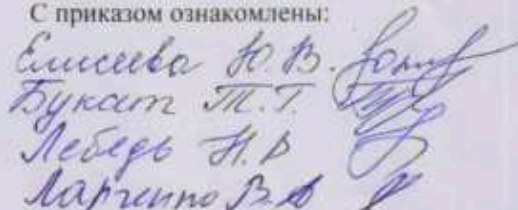 С приказом ознакомлены:
Елисеева Ю. В.
Букат Т. Г.
Лебедь Н. В
Ларченко В. А